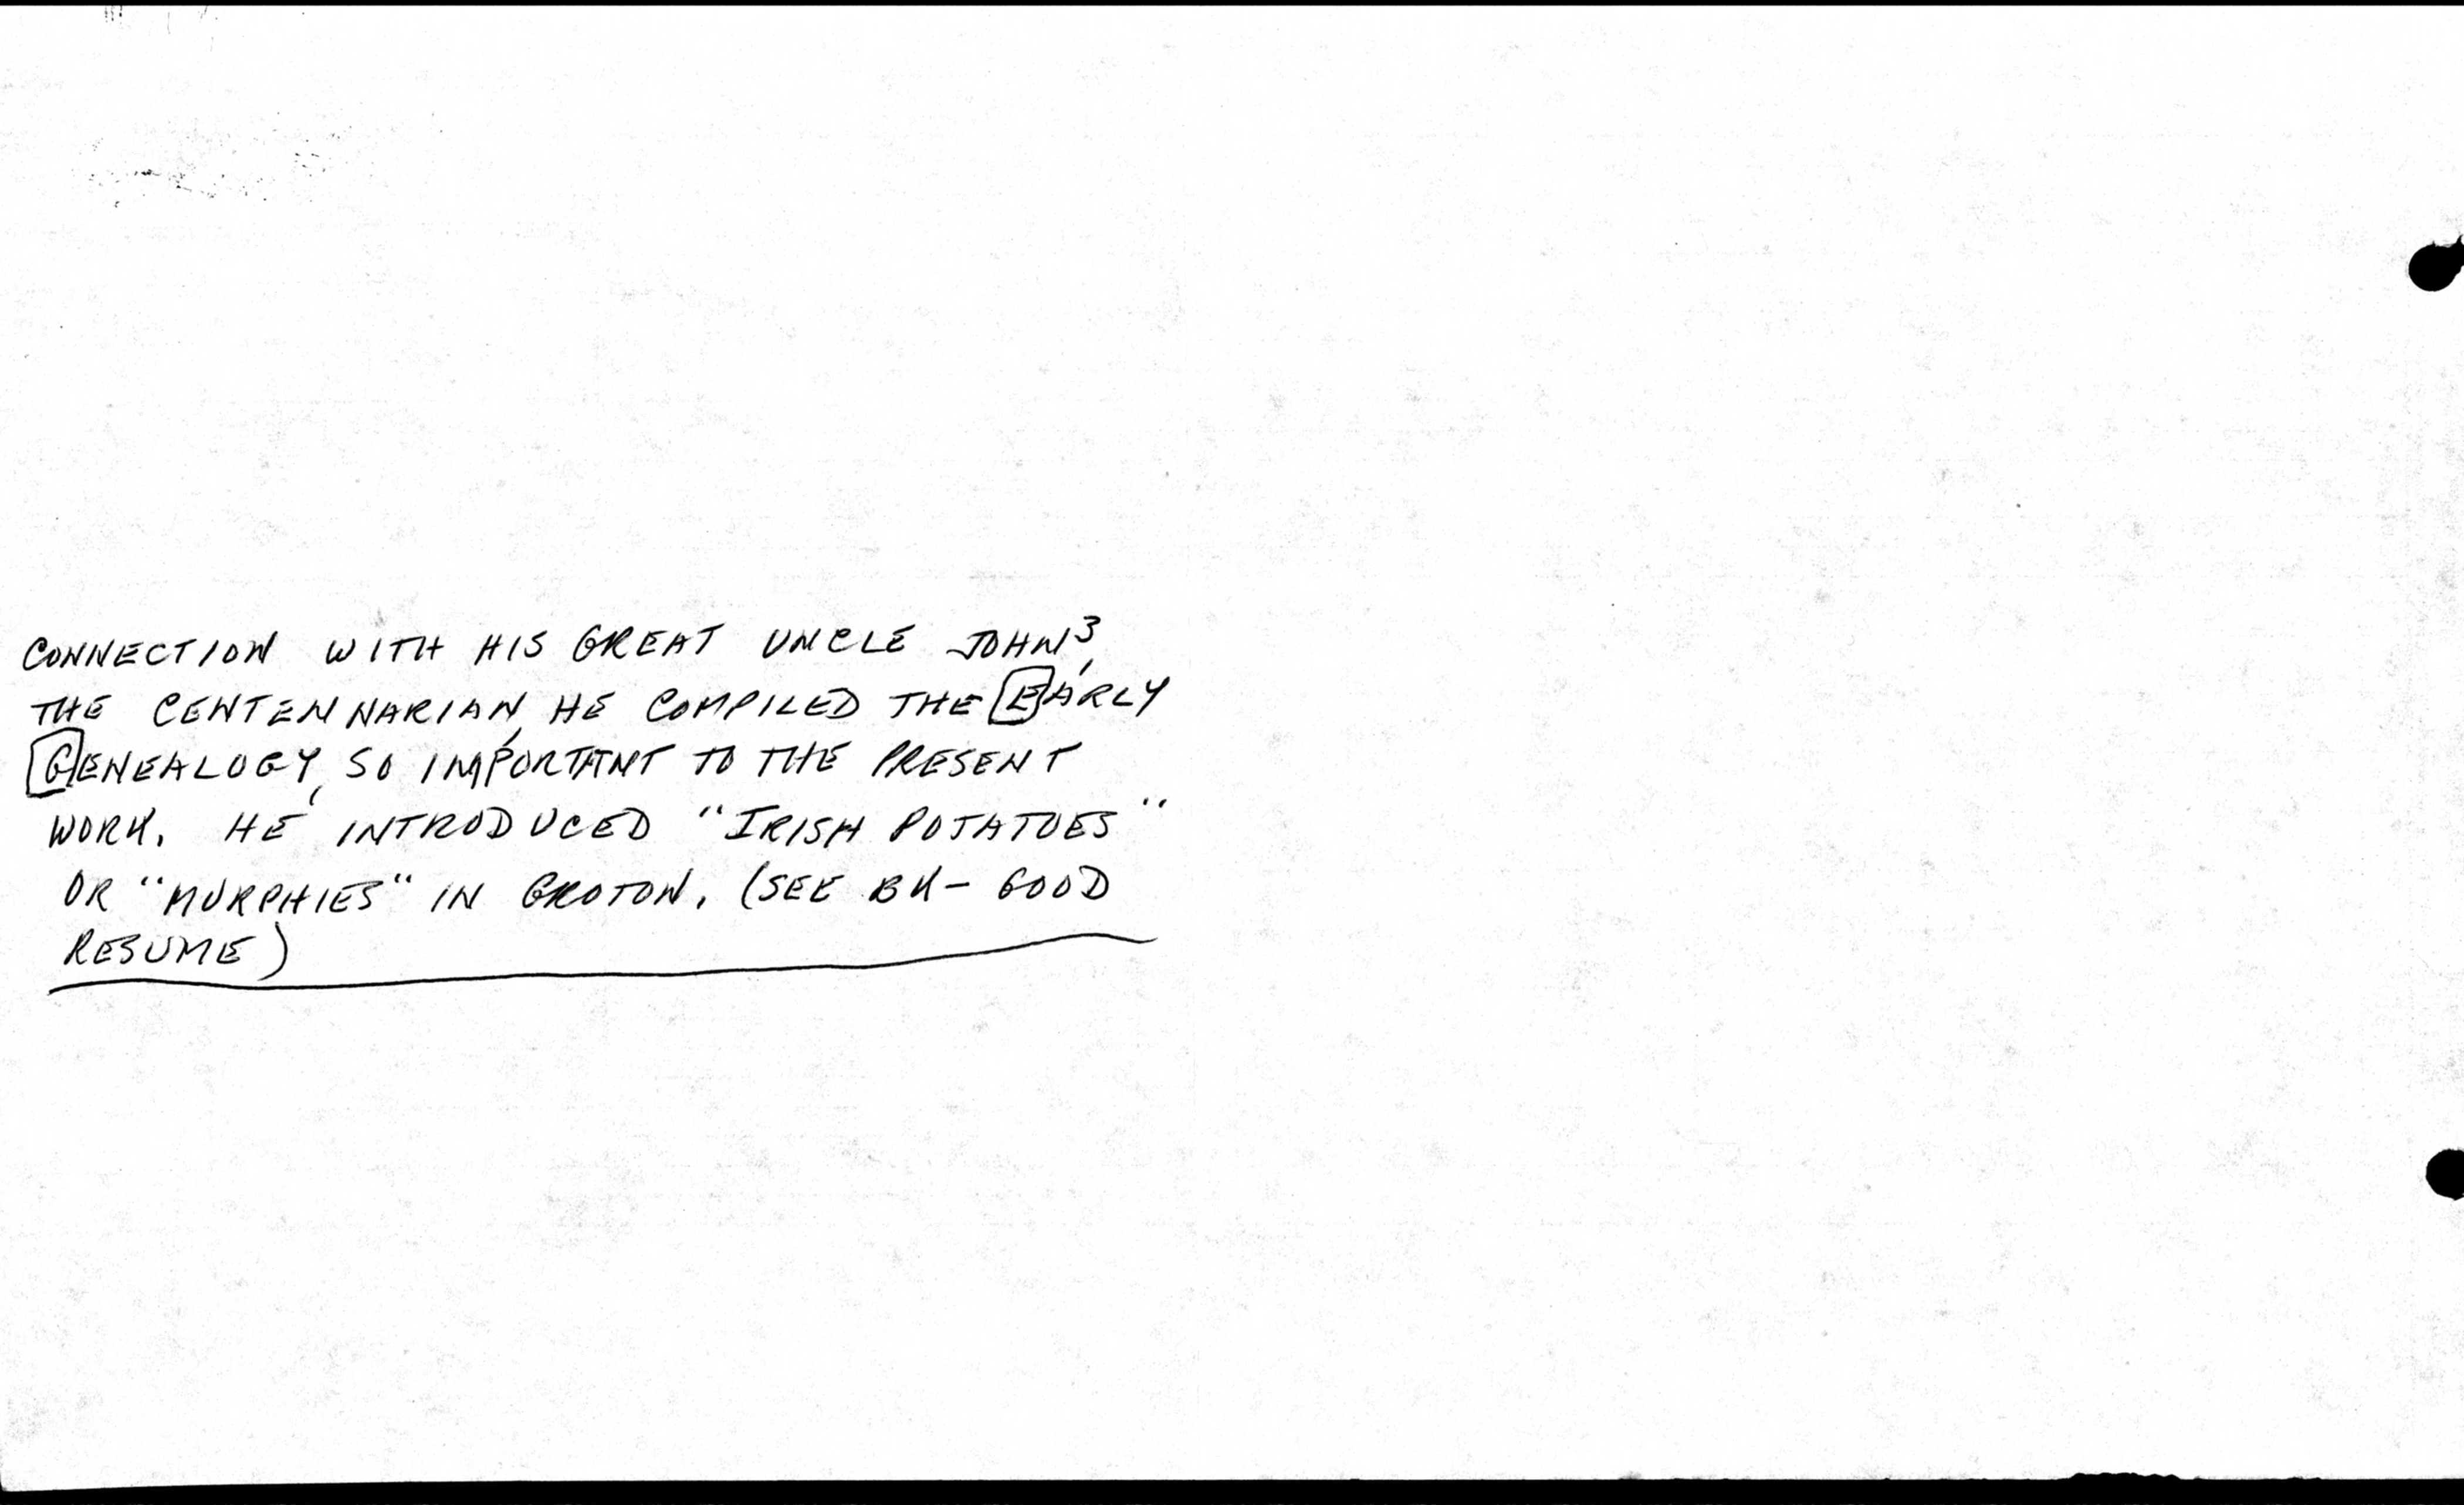 CONNECTION WITH HIS GREAT UNCLE JOHN³,
THE CENTENNARIAN, HE COMPILED THE EARLY
GENEALOGY, SO IMPORTANT TO THE PRESENT
WORK. HE INTRODUCED "IRISH POTATOES"
OR "MURPHIES" IN GROTON. (SEE BK- GOOD
RESUME)